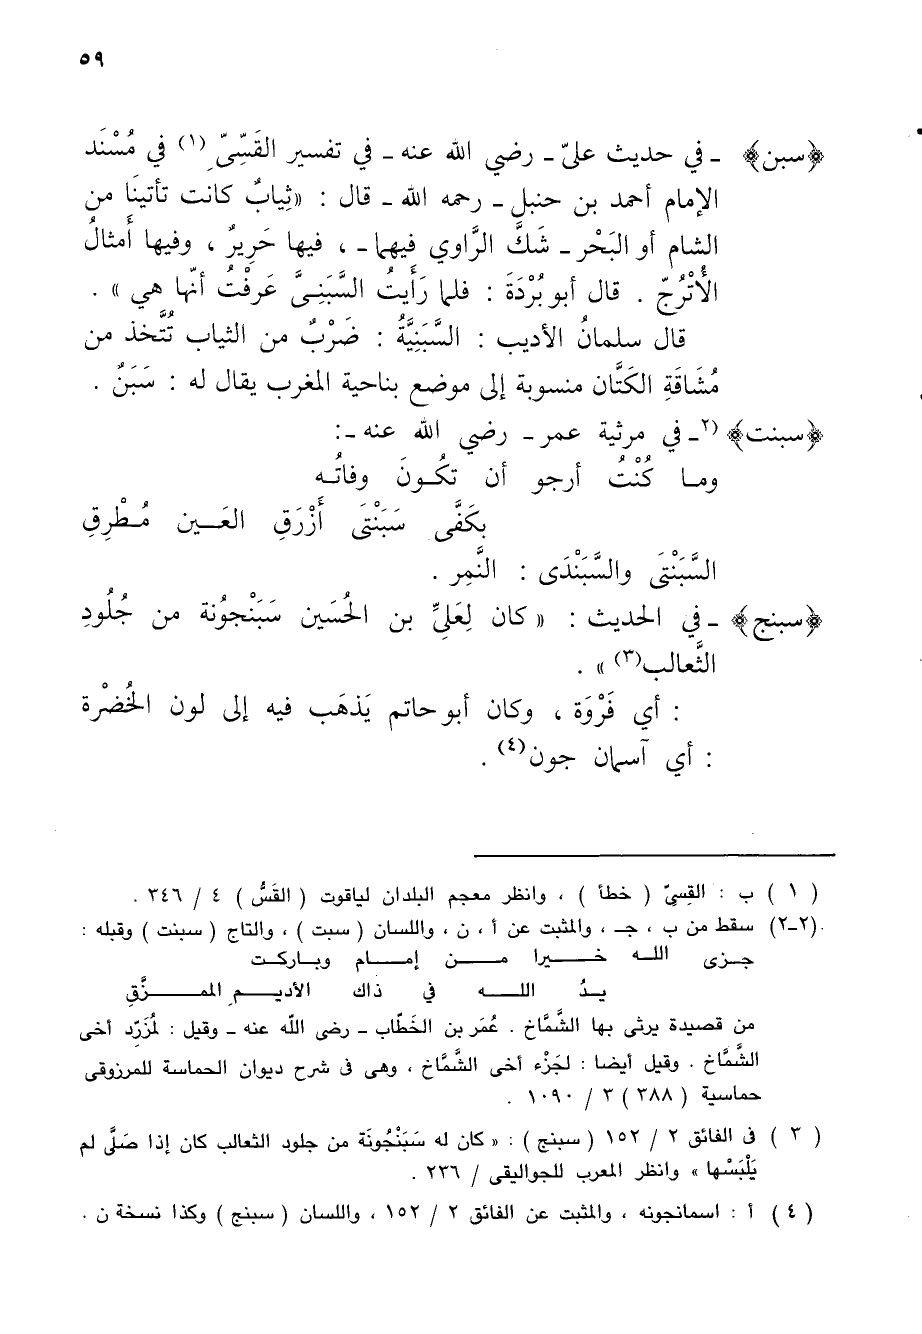 ٥٩
﴿سبن﴾ ـ في حديث عليّ ـ رضي الله عنه ـ في تفسير القَسِّيّ (١) في مُسْنَد
الإمام أحمد بن حنبل ـ رحمه الله ـ قال : «ثِيابٌ كانت تأتينَا من
الشام أو البَحْر ـ شَكَّ الرَّاوي فيهما ـ ، فيها حَرِيرٌ ، وفيها أَمثالُ
الأُتْرُجّ . قال أبو بُرْدَةَ : فلما رَأَيتُ السَّبَنِيَّ عَرَفْتُ أنَّها هي » .
قال سلمانُ الأديب : السَّبَنِيَّةُ : ضَرْبٌ من الثياب تُتَّخذ من
مُشَاقَةِ الكَتَّان منسوبة إلى موضع بناحية المغرب يقال له : سَبَنٌ .
﴿سبنت﴾ (٢ـ في مرثية عمر ـ رضي الله عنه ـ:
ومـا كُنْتُ أرجو أن تكُـونَ وفاتُـه
بكَفَّى سَبَنْتَى أَزْرَقِ العَـيـن مُـطْرِقِ
السَّبَنْتَى والسَّبَنْدَى : النَّمِر .
﴿سبنج﴾ ـ في الحديث : « كان لِعَليِّ بن الحُسَين سَبَنْجُونَة من جُلُودِ
الثَّعالب(٣) » .
: أي فَرْوَة ، وكان أبو حاتم يَذهَب فيه إلى لون الخُضْرة
: أي آسمان جون(٤) .
( ١ ) ب : القِسىّ ( خطأ ) ، وانظر معجم البلدان لياقوت ( القَسُّ ) ٤ / ٣٤٦ .
(٢ـ٢) سقط من ب ، جـ ، والمثبت عن أ ، ن ، واللسان ( سبت ) ، والتاج ( سبنت ) وقبله :
جـزى اللـه خـيـرا مـن إمـام وبـاركـت
يـدُ اللـه فى ذاك الأديـم المـمـزَّقِ
من قصيدة يرثى بها الشَّماخ . عُمَر بن الخَطَّاب ـ رضى اللّه عنه ـ وقيل : لمُزَرِّد أخى
الشَّماخ . وقيل أيضا : لجَزْء أخى الشَّماخ ، وهى فى شرح ديوان الحماسة للمرزوقى
حماسية ( ٣٨٨ ) ٣ / ١٠٩٠ .
( ٣ ) فى الفائق ٢ / ١٥٢ ( سبنج ) : « كان له سَبَنْجُونَة من جلود الثعالب كان إذا صَلَّى لم
يَلْبَسْها » وانظر المعرب للجواليقى / ٢٣٦ .
( ٤ ) أ : اسمانجونه ، والمثبت عن الفائق ٢ / ١٥٢ ، واللسان ( سبنج ) وكذا نسخة ن .